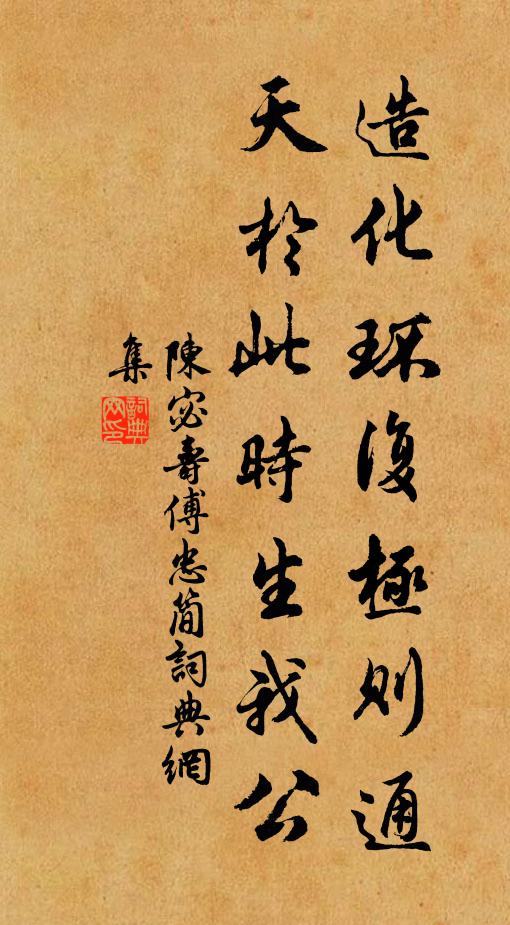 造化环復極则通
天於此時生我公
陳宓壽傅忠简詞典網
集
詞典網印